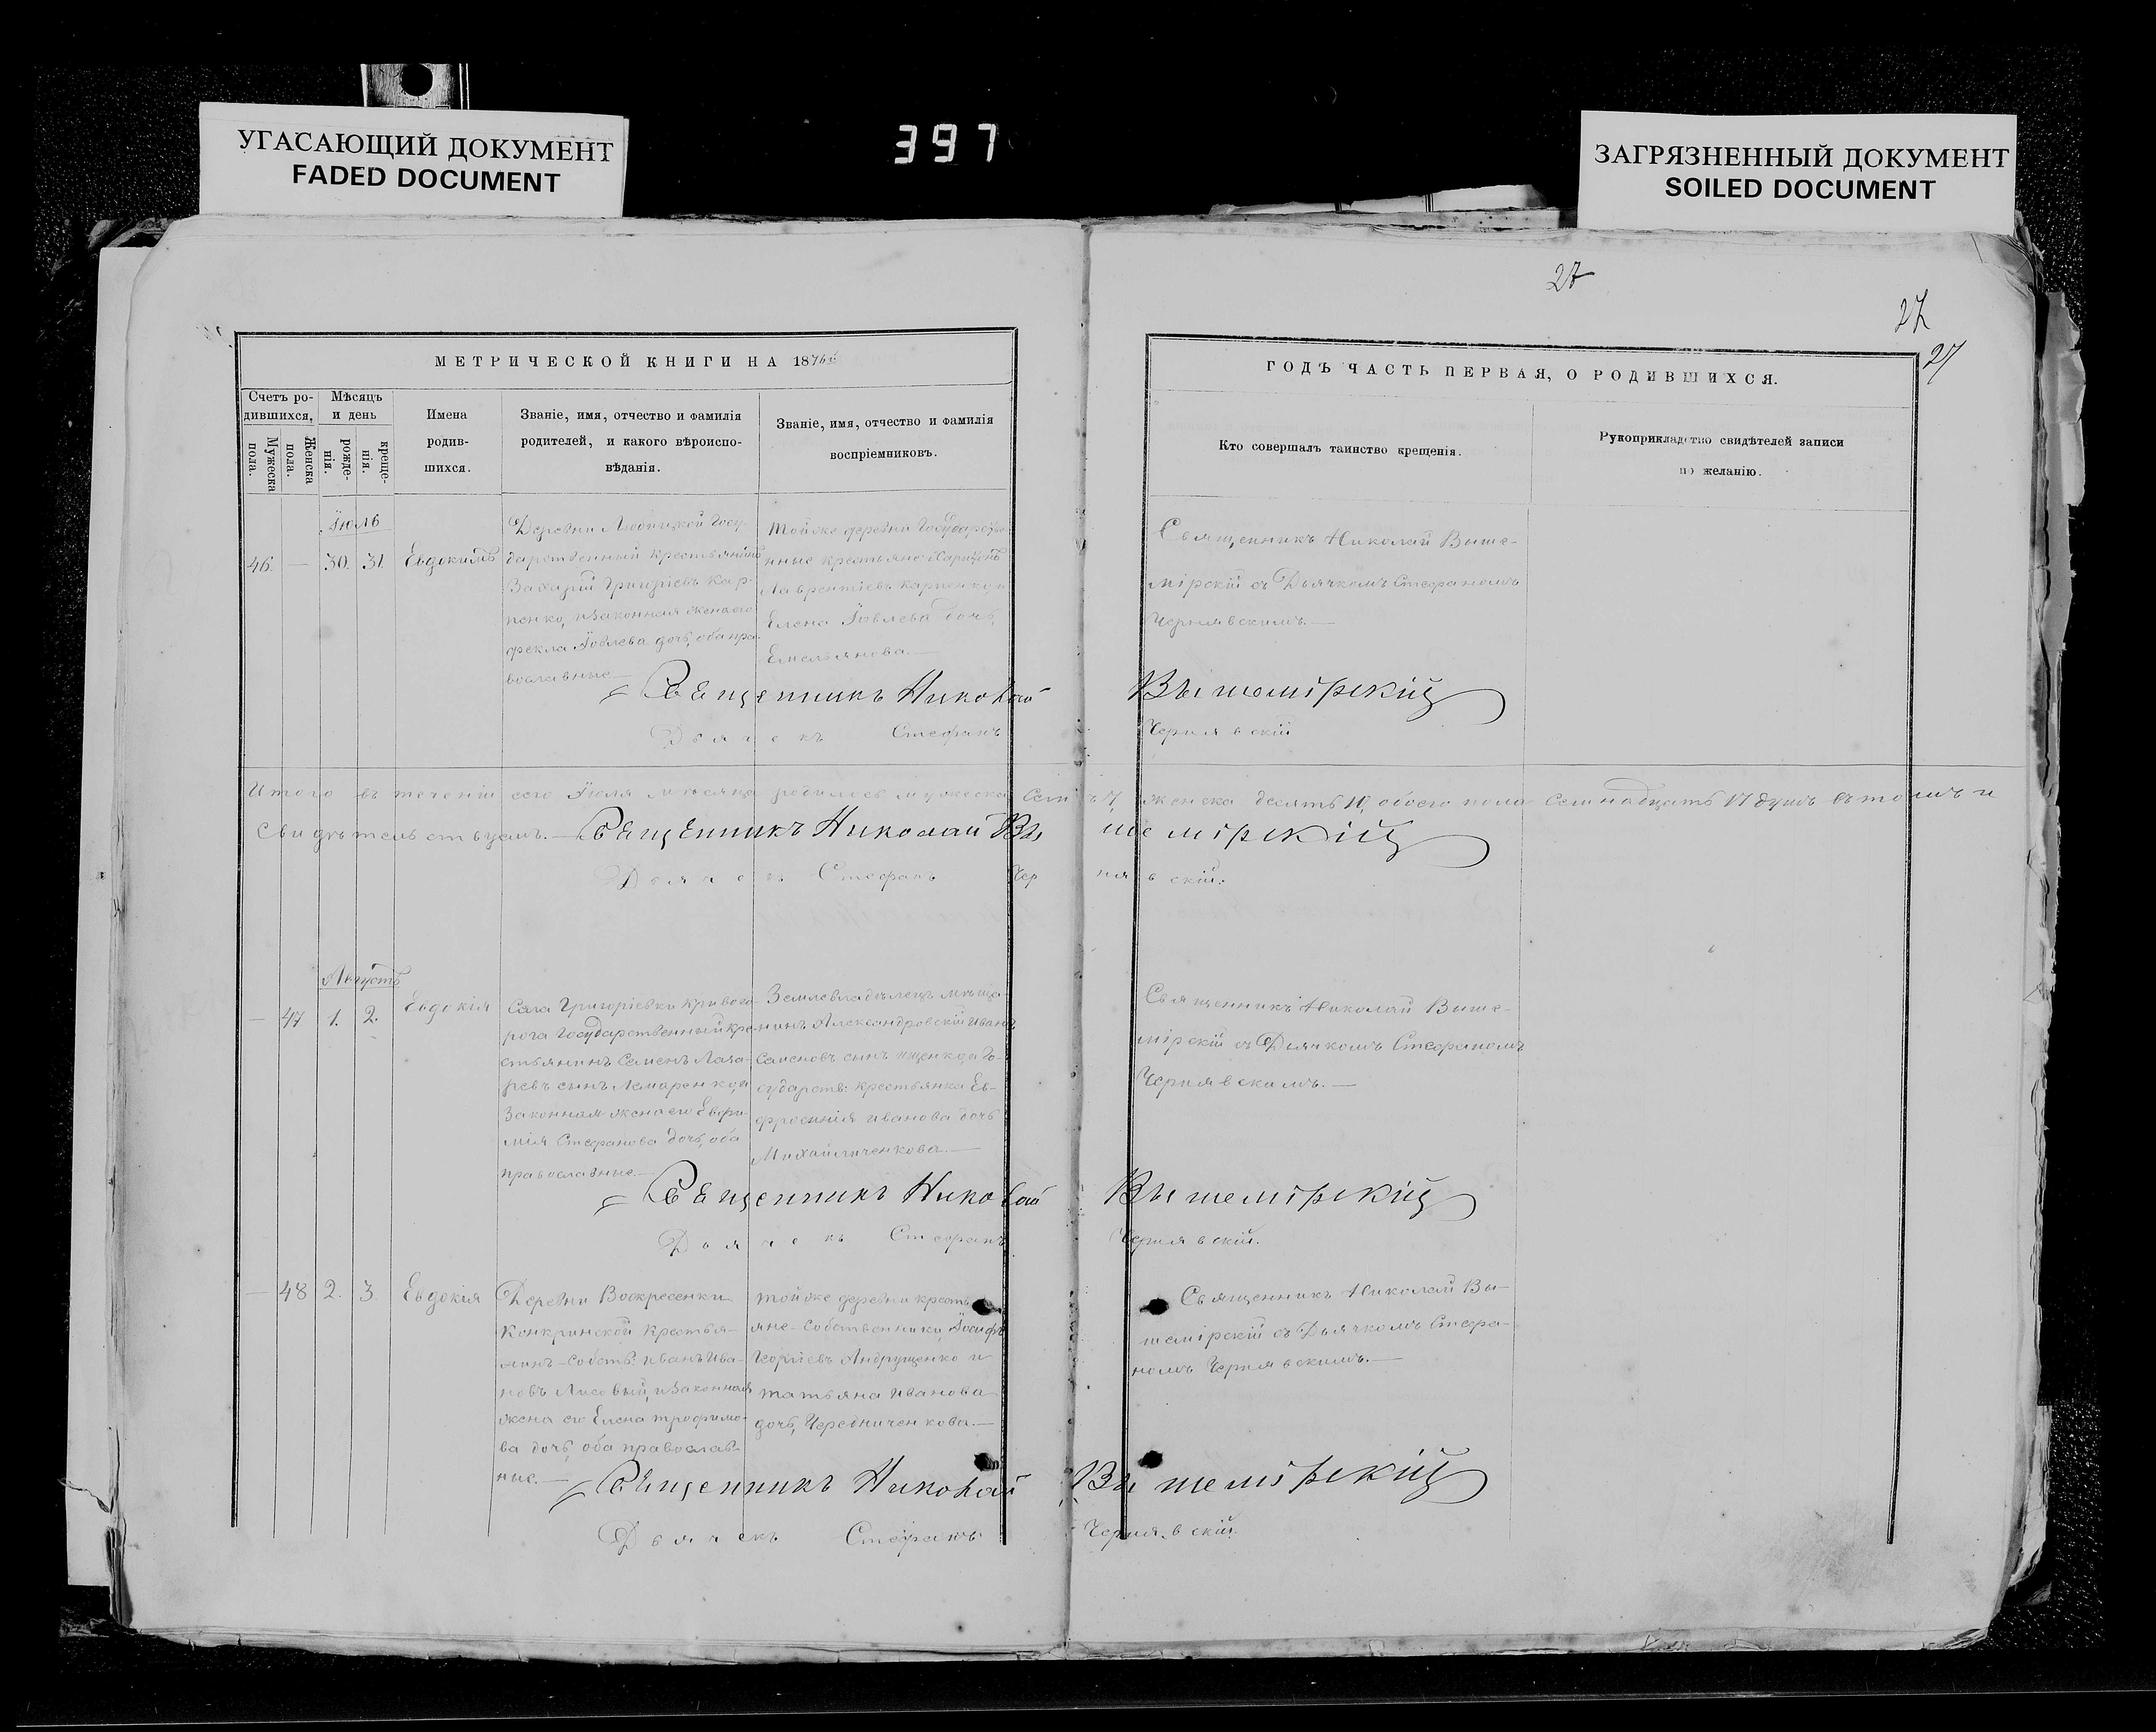 УГАСАЮЩИЙ ДОКУМЕНТ
FADED DOCUMENT
397
ЗАГРЯЗНЕННЫЙ ДОКУМЕНТ
SOILED DOCUMENT
27
27
27
МЕТРИЧЕСКОЙ КНИГИ НА 1876й
Счетъ ро-
дившихся,
Мужеска
пола.
Женска
пола.
Мѣсяцъ
и день
рожде-
нія.
креще-
нія.
Имена
родив-
шихся.
Званіе, имя, отчество и фамилія
родителей, и какого вѣроиспо-
вѣданія.
Званіе, имя, отчество и фамилія
воспріемниковъ.
ГОДЪ ЧАСТЬ ПЕРВАЯ, О РОДИВШИХСЯ.
Кто совершалъ таинство крещенія.
Рукоприкладство свидѣтелей записи
по желанію.
Іюль
46. — 30. 31. Евдокимъ
Деревни Госу-
дарственный крестьянинъ
Захарій Григоріевъ Кар-
пенко, и законная жена его
Фекла Іовлева дочь, оба пра-
вославные.—
тойже деревни Государстве-
нные крестьяне: Харитонъ
Лаврентіевъ Карпенко и
Елена Іовлева дочь,
Емельянова.—
Священникъ Николай Выше-
мірскій съ Дьячкомъ Стефаномъ
Чернявскимъ.—
Священникъ Николай Вышемірскій
Дьячекъ Стефанъ Чернявскій
Итого въ теченіи сего Іюля мѣсяца родилось мужеска семь 7, женска десять 10, обоего пола семнадцать 17 душъ въ томъ и
свидѣтельствуемъ.— Священникъ Николай Вышемірскій
Дьячекъ Стефанъ Чернявскій.
Августъ
— 47 1. 2. Евдокія
Села Григоріевки Кривого
рога Государственный кре-
стьянинъ Семенъ Лаза-
ревъ сынъ и
законная жена его Евфи-
мія Стефанова дочь, оба
православные.—
Землевладѣлецъ мѣща-
нинъ Александровскій Иванъ
Семеновъ сынъ Ищенко, и Го-
сударств: крестьянка Ев-
фросинія Иванова дочь
Михайличенкова.—
Священникъ Николай Выше-
мірскій съ Дьячкомъ Стефаномъ
Чернявскимъ.—
Священникъ Николай Вышемірскій
Дьячекъ Стефанъ Чернявскій.
— 48 2. 3. Евдокія
Деревни Воскресенки
Конкринской Крестья-
нинъ-собств: Иванъ Ива-
новъ Лисовый, и законная
жена его Елена Трофимо-
ва дочь, оба православ-
ные.—
тойже деревни кресть-
яне-собственники, Іосифъ
Георгіевъ Андрущенко и
Татьяна Иванова
дочь, Чередниченкова.—
Священникъ Николай Вы-
шемірскій съ Дьячкомъ Стефа-
номъ Чернявскимъ.—
Священникъ Николай Вышемірскій
Дьячекъ Стефанъ Чернявскій.